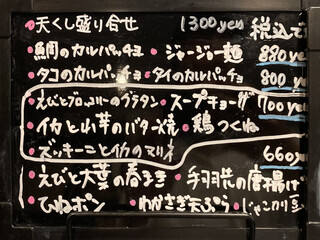 天くし盛り合せ 1300yen 税込
鯛のカルパッチョ ・ジャージャー麺 880ye
タコのカルパッチョ ・タイのカルパッチョ 800 ye
えびとブロッコリーのグラタン ・スープチョーザ 700ye
イカと山芋のバター焼 ・鶏つくね
ズッキーニとイカのマリネ 660ye
えびと大葉の春まき ・手羽先の唐揚げ
ひねポン ・わかさぎ天ぷら